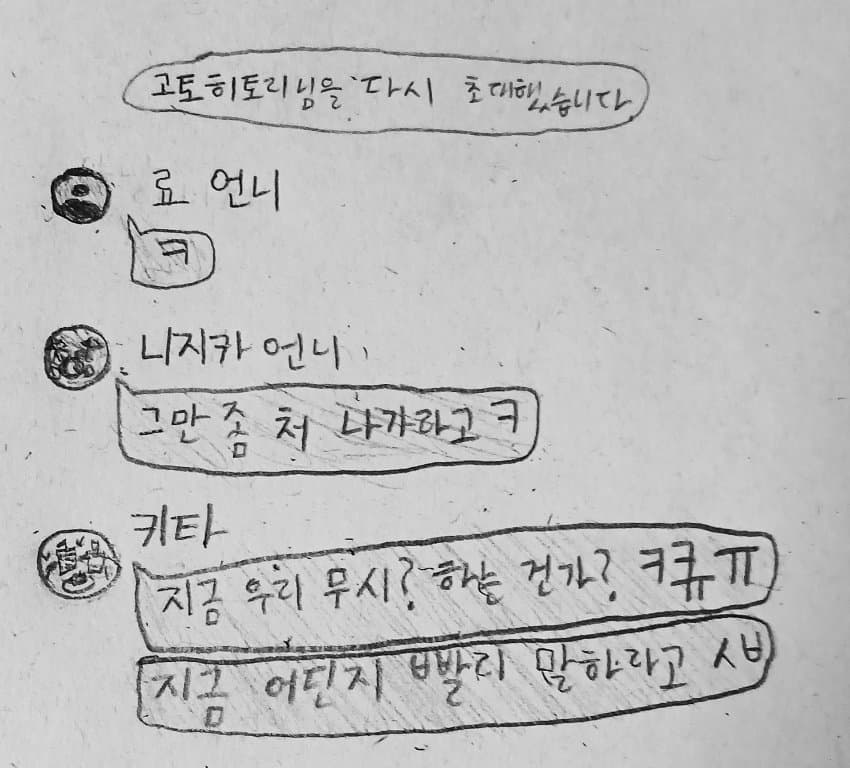 고토히토리님을 다시 초대했습니다
료 언니
ㅋ
니지카 언니
그만 좀 처 나가라고 ㅋ
키타
지금 우리 무시? 하는 건가? ㅋ큐ㅠ
지금 어딘지 ㅂ발리 말하라고 ㅅㅂ